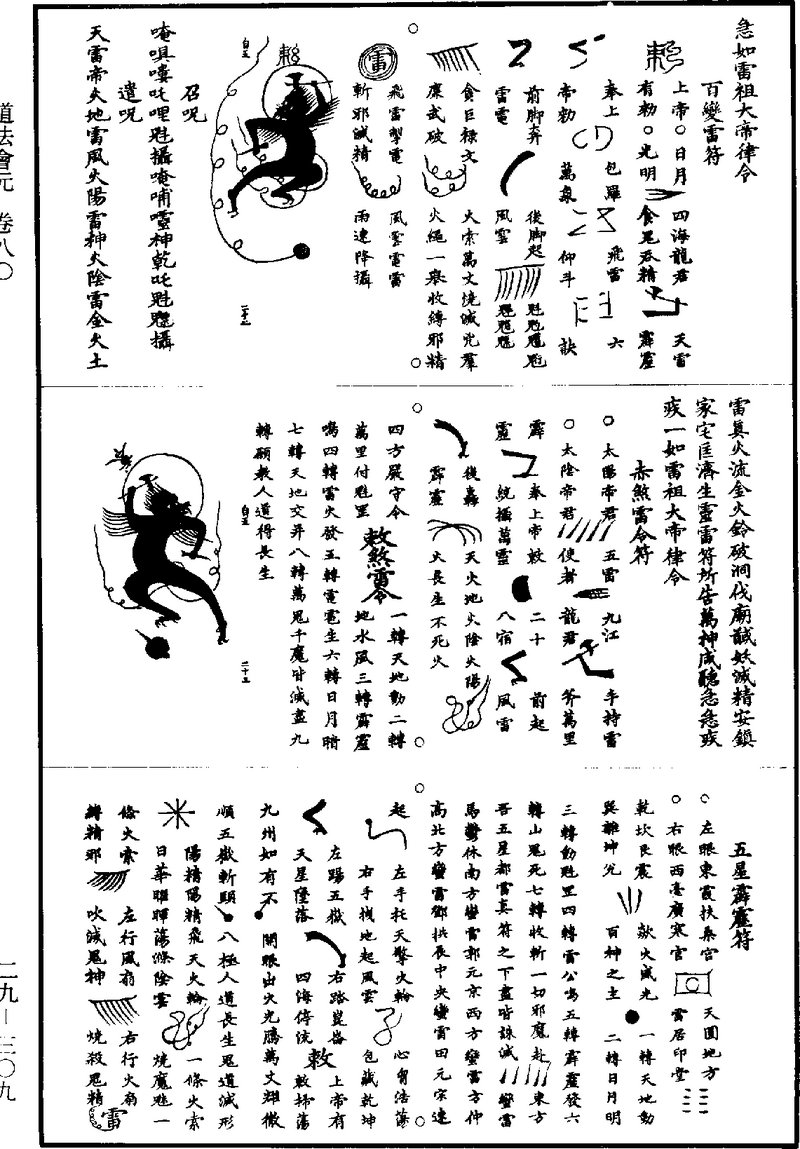 道法會元 卷八〇
急如雷祖大帝律令
百變雷符
上帝○日月 四海龍君 天雷
有勅○光明 食鬼吞精 霹靂
奉上 包羅 飛雷 六
帝勅 萬象 仰斗 訣
前脚奔 後脚起
雷電 風雲
貪巨祿文 火索萬丈燒滅兇群
廉武破 火繩一舉收縛邪精
雷
飛雷掣電 風雲電雷
斬邪滅精 雨速降攝
白玉
召呪
遣呪
天雷帝火地雷風火陽雷神火陰雷金火土
雷真火流金火鈴破洞伐廟馘妖滅精安鎮
家宅匡濟生靈雷符所告萬神咸聽急急疾
疾一如雷祖大帝律令
赤煞雷令符
○太陽帝君 五雷 九江 手持雷
○太陰帝君 使者 龍君 斧萬里
霹 奉上帝敕 二十 前起
靂 統攝萬靈 八宿 風雷
後轟 天火地火陰火陽
霹靂 火長生不死火
四方嚴守令 一轉天地動二轉
萬里付魁罡 地水風三轉霹靂
敕煞雷令
鳴四轉雷火發五轉電雹生六轉日月暗
七轉天地交昇八轉萬鬼千魔皆滅盡九
轉願救人道得長生
白玉
五星霹靂符
○左眼東霞扶桑宮 天圓地方
○右眼西臺廣寒宮 雷居印堂
乾坎艮震 訣火威光 一轉天地動
巽離坤兌 百神之主 二轉日月明
三轉動魁罡四轉雷公鳴五轉霹靂發六
轉山鬼死七轉收斬一切邪魔赴 東方
吾五星都雷真符之下盡皆誅滅 蠻雷
馬鬱林南方蠻雷郭元京西方蠻雷方仲
高北方蠻雷鄧拱辰中央蠻雷田元宗速
起 左手托天擎火輪 心胷浩蕩
右手拽地起風雲 包藏乾坤
左踢五嶽 右踏崑崙 上帝有
天星墮落 四海停流 敕掃蕩
敕
九州如有不 開眼出火光騰萬丈輝徹
順五嶽斬顋 八極人道長生鬼道滅形
陽精陽精飛天火輪 一條火索
日華曜暉蕩滌陰雲 燒魔魅一
條火索 左行風扇 右行火扇
縛精邪 吹滅鬼神 燒殺鬼精
雷
二九—三〇九